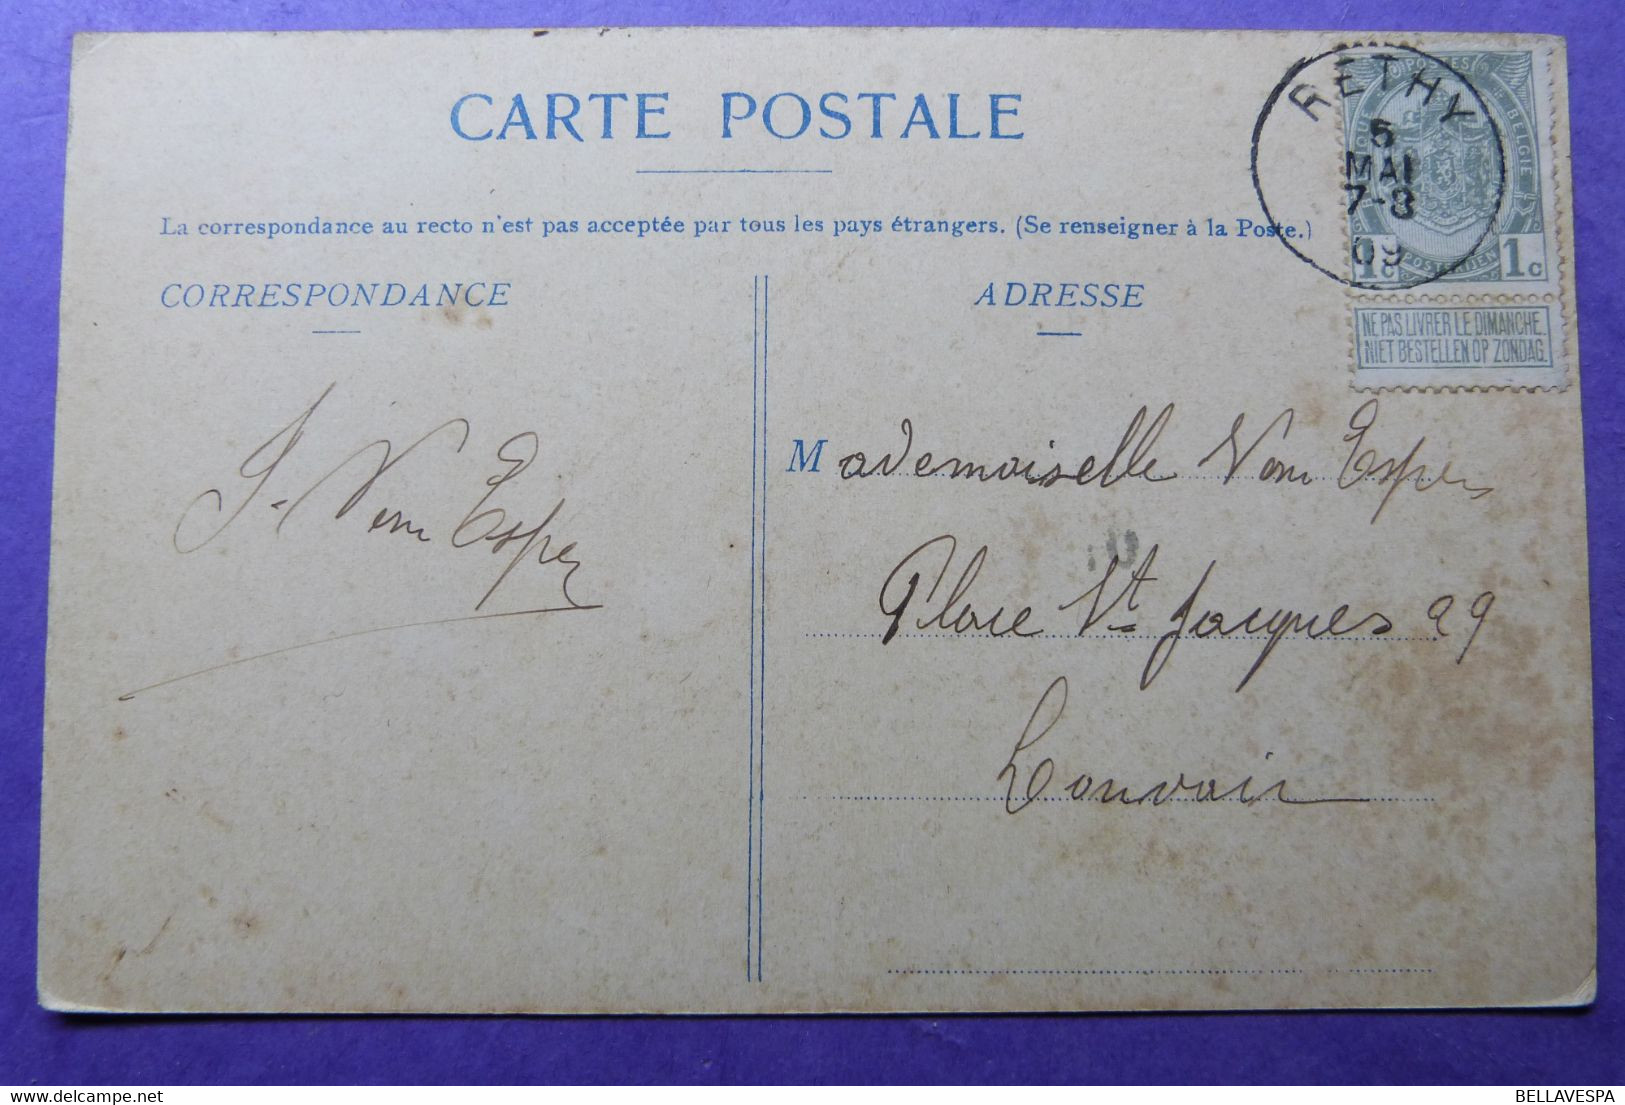 CARTE POSTALE
RETHY
5
MAI
7-8
09
POSTES
BELGIE
POSTERIJEN
1c 1c
NE PAS LIVRER LE DIMANCHE.
NIET BESTELLEN OP ZONDAG.
La correspondance au recto n'est pas acceptée par tous les pays étrangers. (Se renseigner à la Poste.)
CORRESPONDANCE
J. Van Espen
ADRESSE
Mademoiselle Van Espen
Place St Jacques 29
Louvain
BELLAVESPA